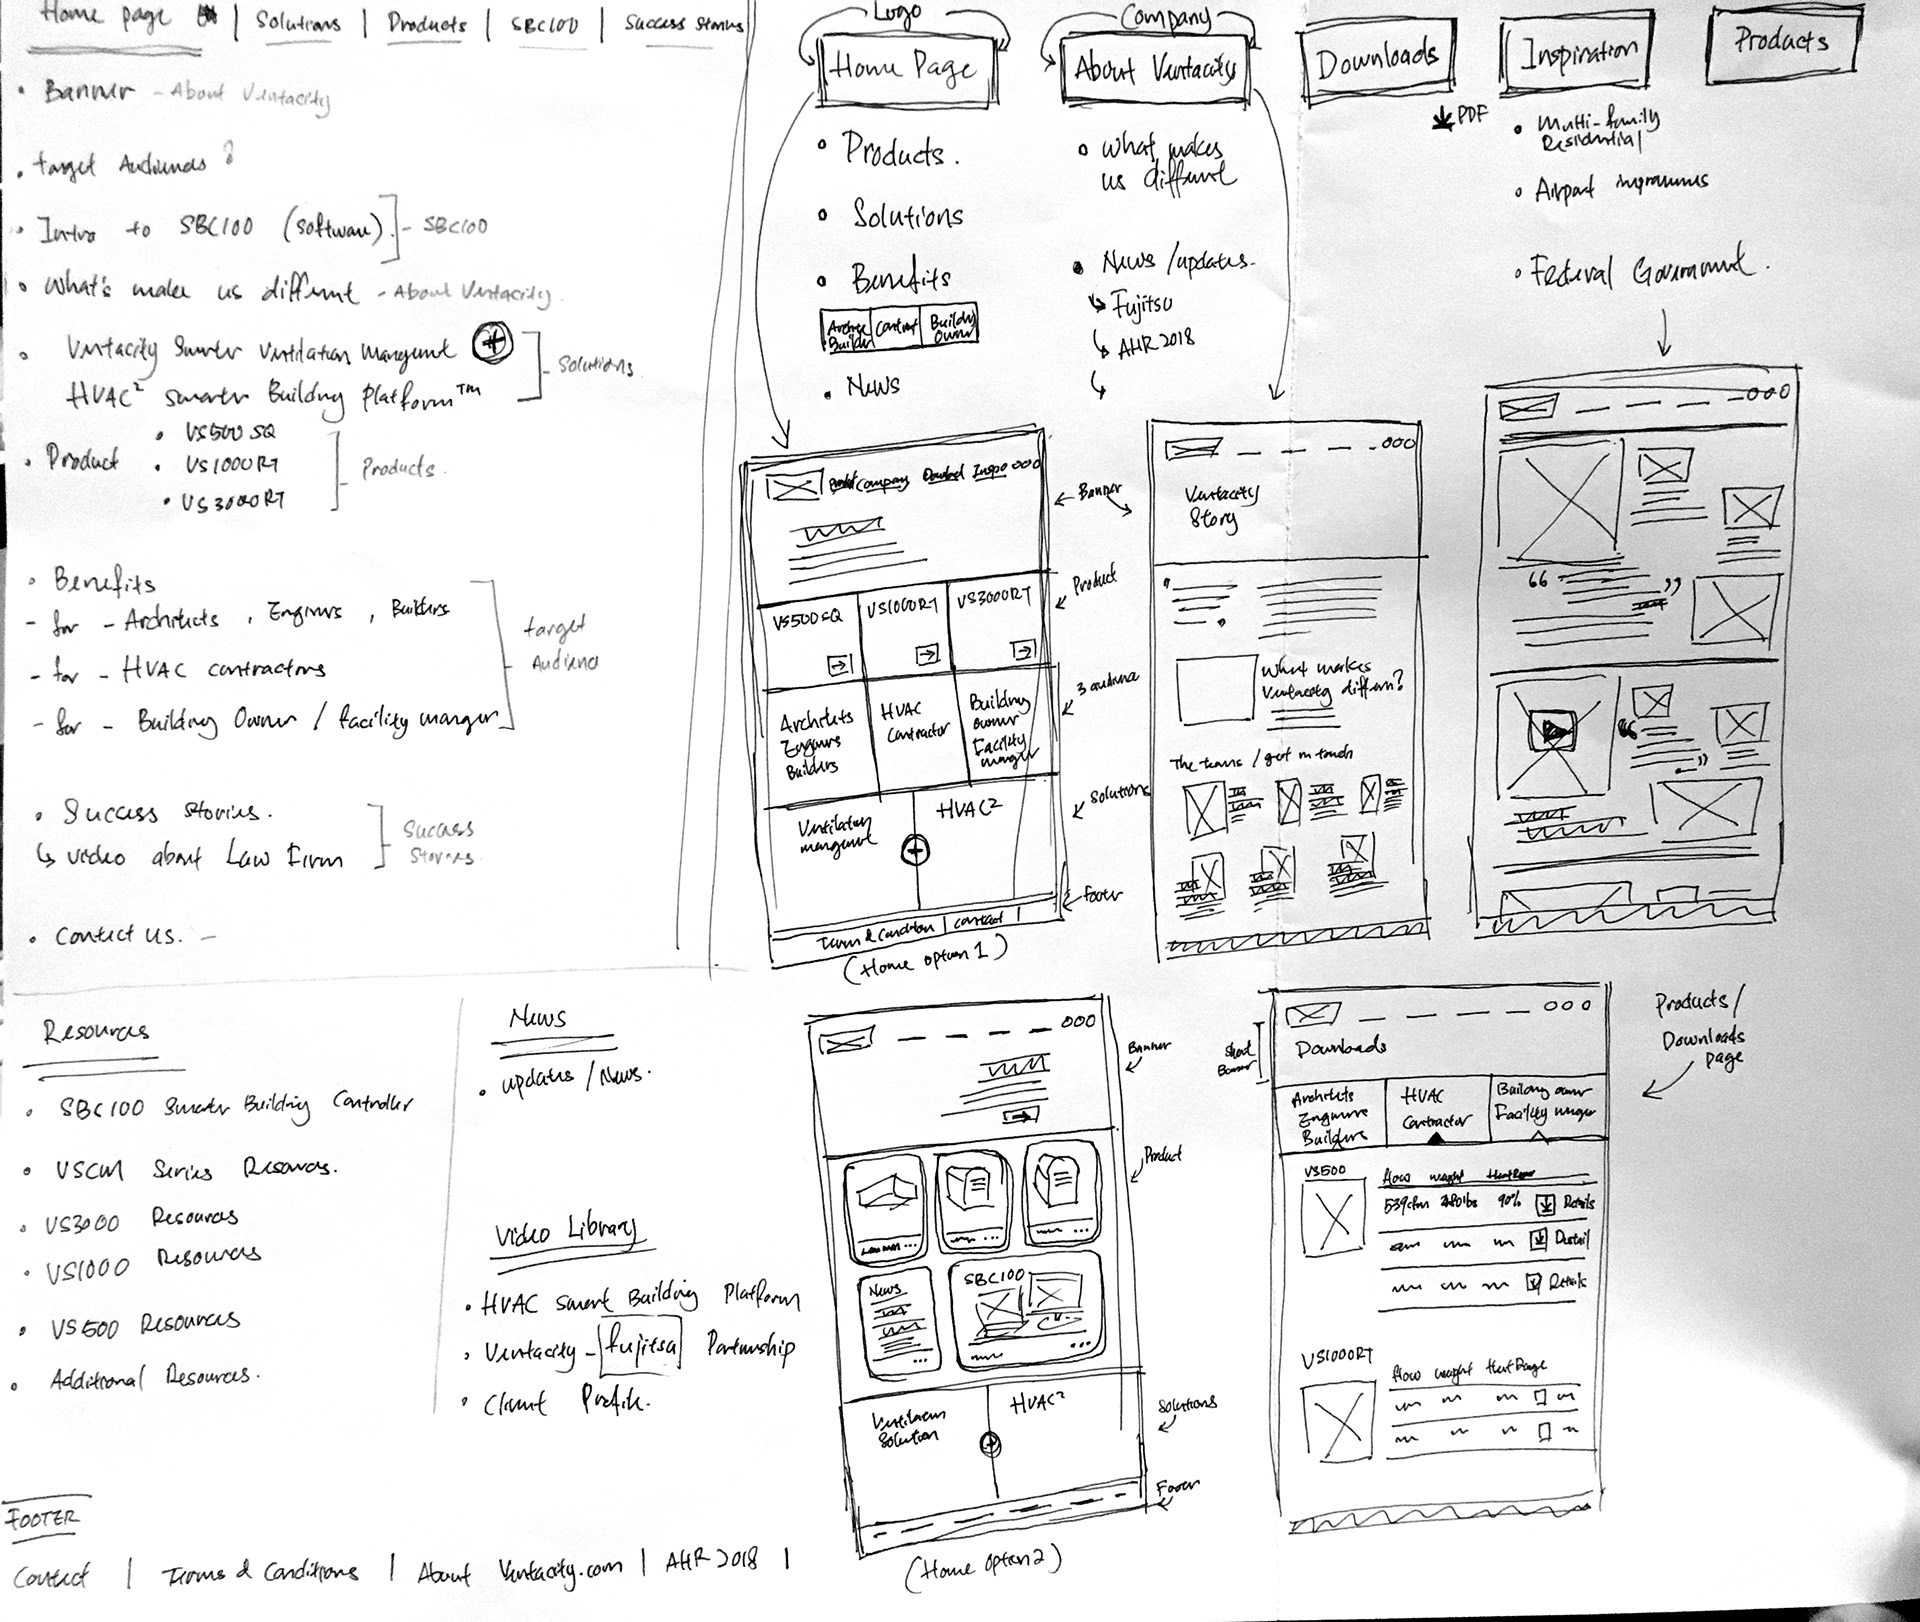 Home page | Solutions | Products | SBC100 | Success Stories
• Banner - About Ventacity
• target Audiences ?
• Intro to SBC100 (software) - SBC100
• What's make us different - About Ventacity
• Ventacity Smarter Ventilation Mangement +
HVAC² Smarter Building Platform™
Solutions
• Product
• VS500 SQ
• VS1000RT
• VS3000RT
Products
• Benefits
- for - Architects, Engineers, Builders
- for - HVAC contractors
- for - Building Owner / facility manger
target
Audience
• Success Stories.
↳ video about Law Firm
Success
Stories
• Contact us. -
Resources
• SBC100 Smarter Building Controller
• VSCM Series Resources.
• VS3000 Resources
• VS1000 Resources
• VS500 Resources
• Additional Resources.
News
• updates / News.
Video Library
• HVAC Smart Building Platform
• Ventacity - fujitsu Partnership
• Client Profile.
FOOTER
Contact | Terms & Conditions | About Ventacity.com | AHR 2018 |
Logo
Home Page
• Products.
• Solutions
• Benefits
Builder
Contract
Building
Owner
• News
Company
About Ventacity
• What makes
us different
• News / updates.
↳ Fujitsu
↳ AHR 2018
Downloads
PDF
Inspiration
• Multi-family
Residential
• Airport
• Federal Government.
Products
Company Download Inspo
VS500SQ
VS1000RT
VS3000RT
Architets
Enginers
Builders
HVAC
Contractor
Building
owner
Facility
manger
Ventilation
mangement
HVAC²
+
Term & Condition | contact |
(Home option 1)
← Banner
← Product
← 3 audience
← Solutions
← Footer
Ventacity
Story
What makes
Ventacity differn?
The teams / get in touch
“ ”
Banner
Product
Solutions
Footer
News
SBC100
Ventilation
Solution
HVAC²
+
(Home option 2)
Short
Banner
Downloads
Products /
Downloads
page
Architets
Enginers
Builders
HVAC
Contractor
Building owner
Facility manger
VS500
flow weight
539cfm
90% Details
Detail
Details
VS1000RT
flow weight